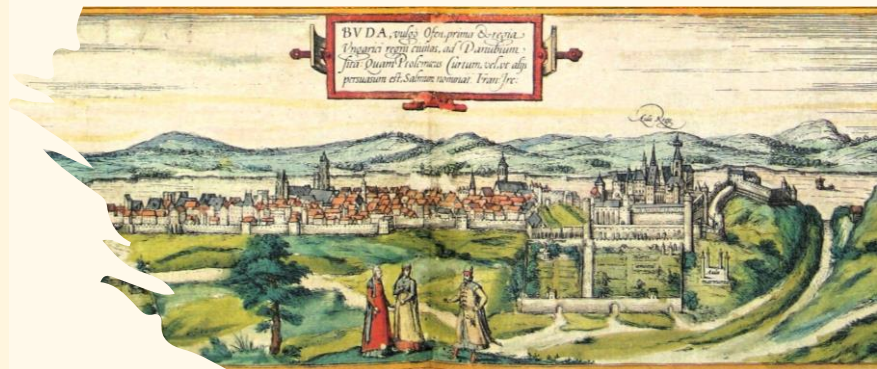 BVDA, vulgo Ofen, prima & regia
Vngarici regni ciuitas, ad Danubium
sita Quam Ptolemeus Curtam, vel, vt alijs
persuasum est, Salinum nominat.
Aula Regis
Aula